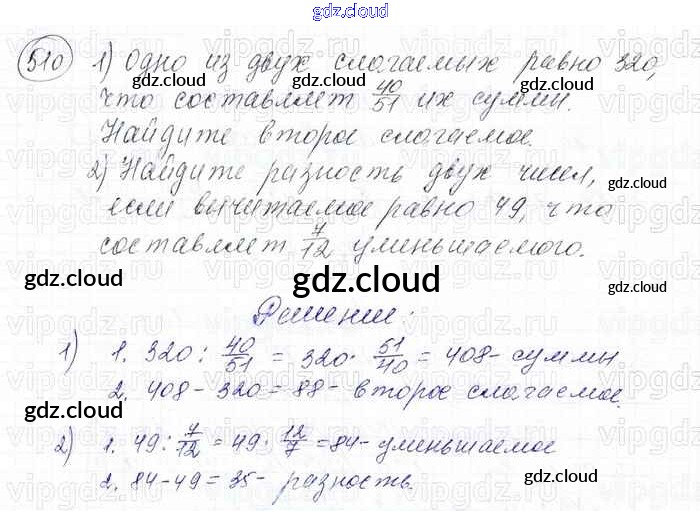 gdz.cloud
510 1) Одно из двух слагаемых равно 320,
что составляет 40/51 их суммы.
Найдите второе слагаемое.
2) Найдите разность двух чисел,
если вычитаемое равно 49, что
составляет 7/12 уменьшаемого.
Решение:
1) 1. 320 : 40/51 = 320 · 51/40 = 408 - суммы
2. 408 - 320 = 88 - второе слагаемое.
2) 1. 49 : 7/12 = 49 · 12/7 = 84 - уменьшаемое
2. 84 - 49 = 35 - разность.
gdz.cloud
gdz.cloud
gdz.cloud
gdz.cloud
gdz.cloud
gdz.cloud
gdz.cloud
gdz.cloud
gdz.cloud
gdz.cloud